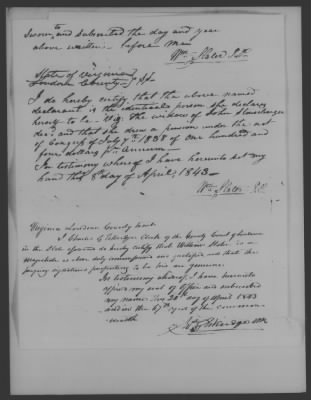 Sworn to, and subscribed the day and year
above written before me
Wm Slater J.P.
State of Virginia
Loudoun County Sct
I do hereby certify that the above named
declarant is the identical person she declares
herself to be viz. the widow of John
dec'd and that she drew a pension under the act
of Congress of July 7th 1838 of one hundred and
four dollars pr Annum
In testimony whereof I have hereunto set my
hand this 8th day of April 1843—
Wm Slater J.P.
Virginia Loudoun County Court
I Charles G. Eskridge Clerk of the County Court of Loudoun
in the State aforesaid do hereby certify that William Slater is a
Magistrate duly commissioned and qualified and that the
foregoing signatures purporting to be his are genuine.
In testimony whereof I have hereunto
affixed my seal of Office and subscribed
my name this 20th day of April 1843
and in the 67th year of the common-
wealth
C. G. Eskridge